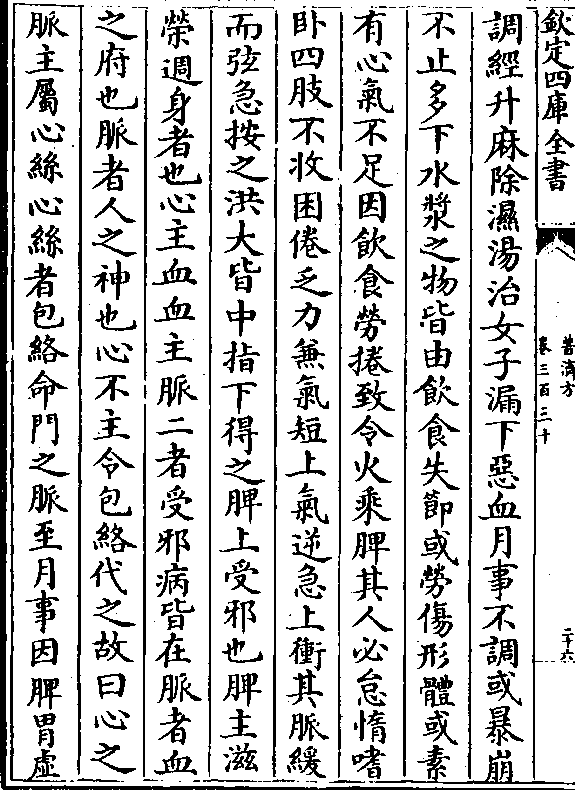 欽定四庫全書
普濟方
卷三百三十
二十六
調經升麻除濕湯治女子漏下惡血月事不調或暴崩
不止多下水漿之物皆由飲食失節或勞傷形體或素
有心氣不足因飲食勞捲致令火乘脾其人必怠惰嗜
卧四肢不收困倦乏力兼氣短上氣逆急上衝其脈緩
而弦急按之洪大皆中指下得之脾上受邪也脾主滋
榮週身者也心主血血主脈二者受邪病皆在脈者血
之府也脈者人之神也心不主令包絡代之故曰心之
脈主屬心絲心絲者包絡命門之脈至月事因脾胃虛